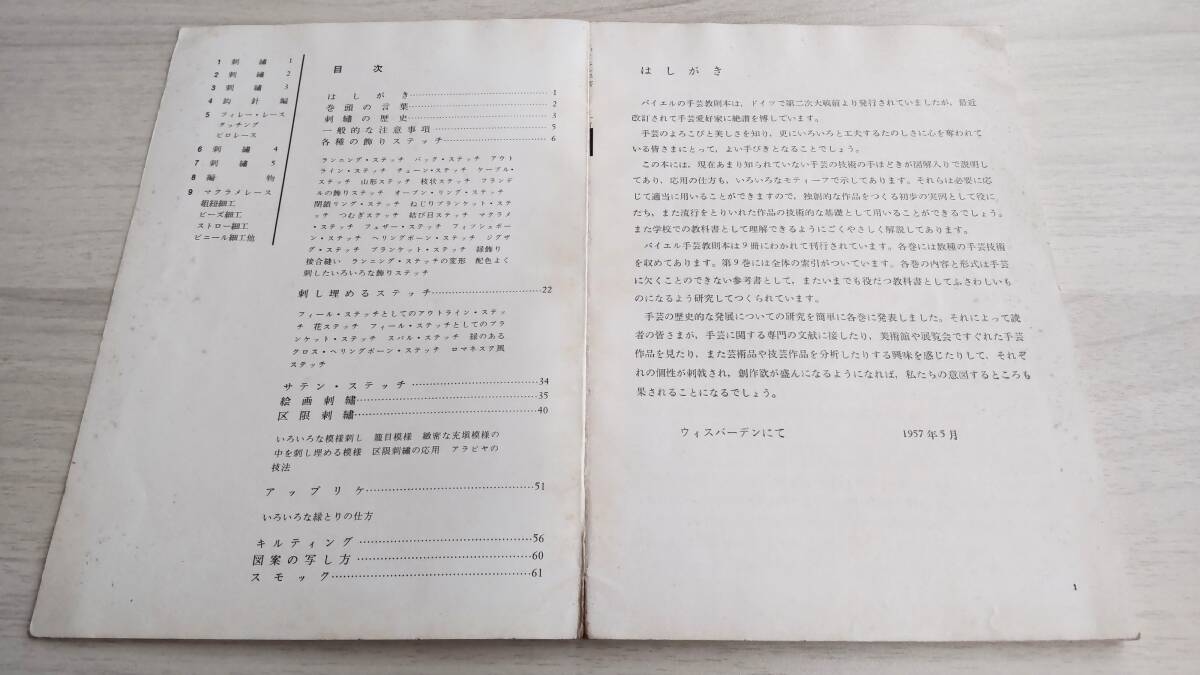 1 刺繡 1
2 刺繡 2
3 刺繡 3
4 鈎針編
5 フィレー・レース
タッチング
ピロレース
6 刺繡 4
7 刺繡 5
8 編物
9 マクラメレース
組紐細工
ビーズ細工
ストロー細工
ビニール細工他
目次
はしがき……………………1
巻頭の言葉……………………2
刺繡の歴史……………………3
一般的な注意事項……………………5
各種の飾りステッチ……………………6
ランニング・ステッチ バック・ステッチ アウト
ライン・ステッチ チェーン・ステッチ ケーブル・
ステッチ 山形ステッチ 枝状ステッチ フランデ
ルの飾りステッチ オープン・リング・ステッチ
閉鎖リング・ステッチ ねじりブランケット・ステ
ッチ つむぎステッチ 結び目ステッチ マクラメ
・ステッチ フェザー・ステッチ フィッシュボー
ン・ステッチ ヘリングボーン・ステッチ ジグザ
グ・ステッチ ブランケット・ステッチ 縁飾り
接合縫い ランニング・ステッチの変形 配色よく
刺したいろいろな飾りステッチ
刺し埋めるステッチ……………………22
フィールステッチとしてのアウトライン・ステッ
チ 花ステッチ フィール・ステッチとしてのブラ
ンケット・ステッチ スバル・ステッチ 縁のある
クロス・ヘリングボーン・ステッチ ロマネスク風
ステッチ
サテン・ステッチ……………………34
絵画刺繡……………………35
区限刺繡……………………40
いろいろな模様刺し 籠目模様 緻密な充塡模様の
中を刺し埋める模様 区限刺繡の応用 アラビヤの
技法
アップリケ……………………51
いろいろな縁とりの仕方
キルティング……………………56
図案の写し方……………………60
スモック……………………61
はしがき
バイエルの手芸教則本は、ドイツで第二次大戦前より発行されていましたが、最近
改訂されて手芸愛好家に絶讃を博しています。
手芸のよろこびと美しさを知り、更にいろいろと工夫するたのしさに心を奪われて
いる皆さまにとって、よい手びきとなることでしょう。
この本には、現在あまり知られていない手芸の技術の手ほどきが図解入りで説明し
てあり、応用の仕方も、いろいろなモティーフで示してあります。それらは必要に応
じて適当に用いることができますので、独創的な作品をつくる初歩の実例として役に
たち、また流行をとりいれた作品の技術的な基礎として用いることができるでしょう。
また学校での教科書として理解できるようにごくやさしく解説してあります。
バイエル手芸教則本は9冊にわかれて刊行されています。各巻には数種の手芸技術
を収めてあります。第9巻には全体の索引がついています。各巻の内容と形式は手芸
に欠くことのできない参考書として、またいまでも役だつ教科書としてふさわしいも
のになるよう研究してつくられています。
手芸の歴史的な発展についての研究を簡単に各巻に発表しました。それによって読
者の皆さまが、手芸に関する専門の文献に接したり、美術館や展覧会ですぐれた手芸
作品を見たり、また芸術品や技芸作品を分析したりする興味を感じたりして、それぞ
れの個性が刺戟され、創作欲が盛んになるようになれば、私たちの意図するところも
果されることになるでしょう。
ウィスバーデンにて 1957年5月
1